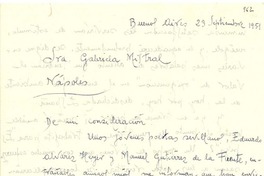 162
Buenos Aires 23 Septiembre 1951
Sra. Gabriela Mistral
Nápoles
De mi consideración
Unos jóvenes poetas sevillanos, Eduardo
Alvarez Heyer y Manuel Gutierrez de la Fuente, en-
mis, me informan, que para